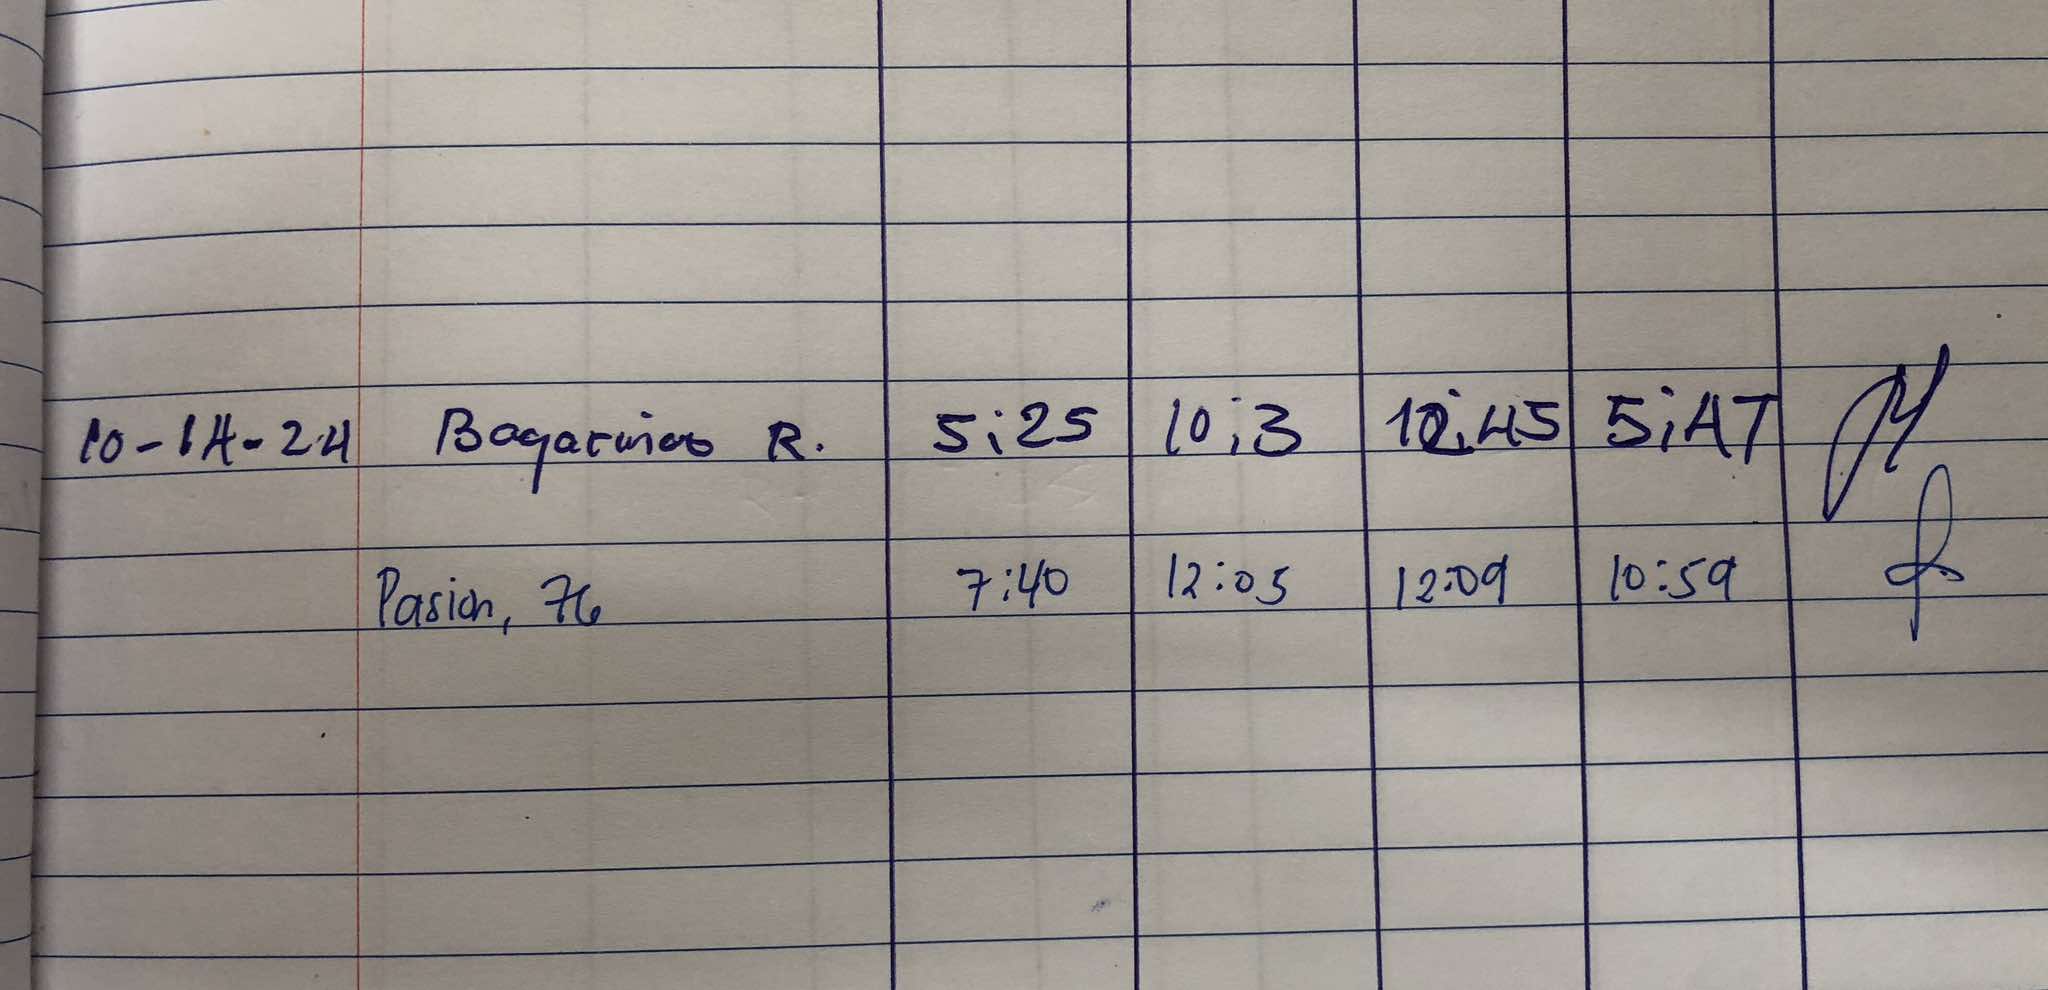 10-14-24 Bagarinao R. 5:25 10:3 12:45 5:47
Pasion, 76 7:40 12:05 12:09 10:59